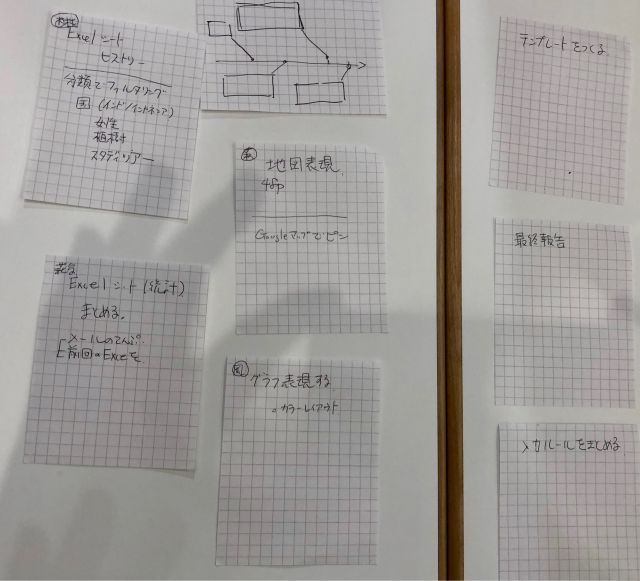 Excelシート
ヒストリー
分類でフィルタリング
国 (インド/インドネシア)
女性
植林
スタディツアー
Excelシート(統計)
まとめる。
メールのてんぷ?
前回のExcelを
地図表現
48p
GoogleマップでピN
グラフ表現する
。カラーレイアウト
テンプレートをつくる
最終報告
入力ルールをまとめる